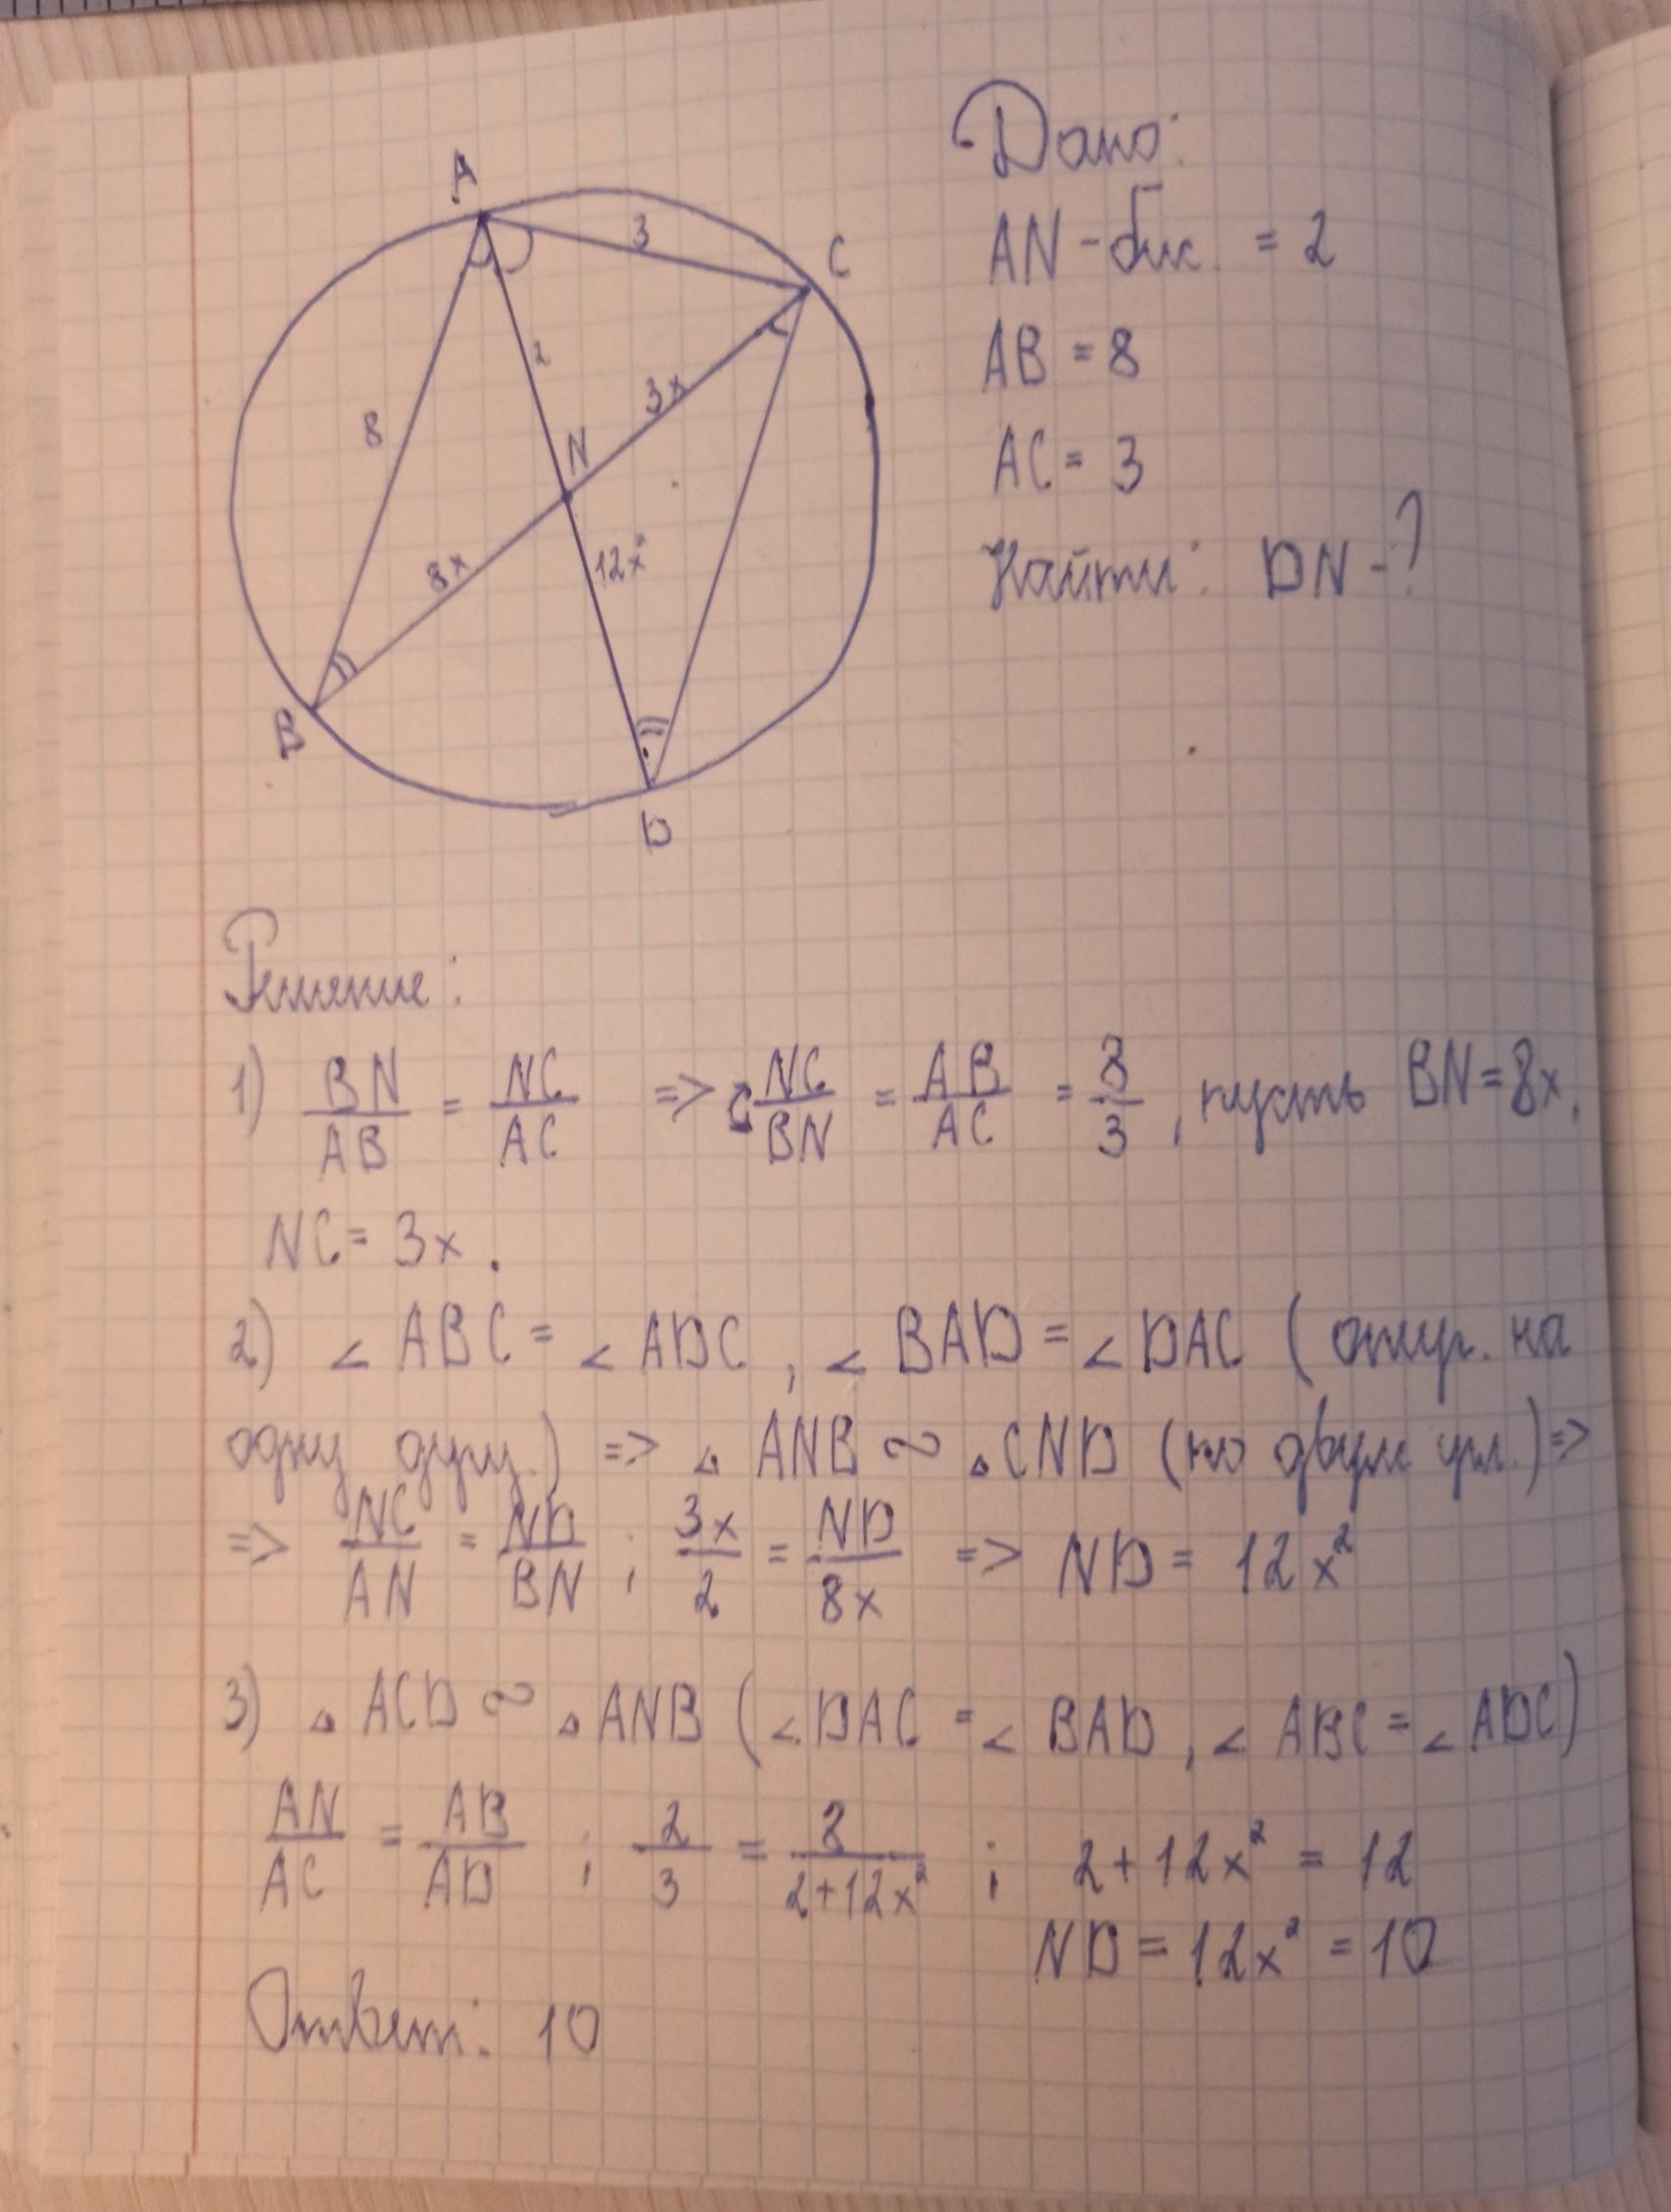 A
3
C
Дано:
AN - бис. = 2
2
AB = 8
3x
8
N
AC = 3
12x²
Найти: DN - ?
8x
B
D
Решение:
1) BN/AB = NC/AC => NC/BN = AB/AC = 8/3, пусть BN = 8x,
NC = 3x.
2) ∠ ABC = ∠ ADC, ∠ BAD = ∠ DAC (опир. на
одну дугу.) => △ ANB ∾ △ CND (по двум угл.) =>
=> NC/AN = ND/BN ; 3x/2 = ND/8x => ND = 12x²
3) △ ACD ∾ △ ANB (∠ DAC = ∠ BAD, ∠ ABC = ∠ ADC)
AN/AC = AB/AD ; 2/3 = 8/2+12x² ; 2 + 12x² = 12
ND = 12x² = 10
Ответ: 10